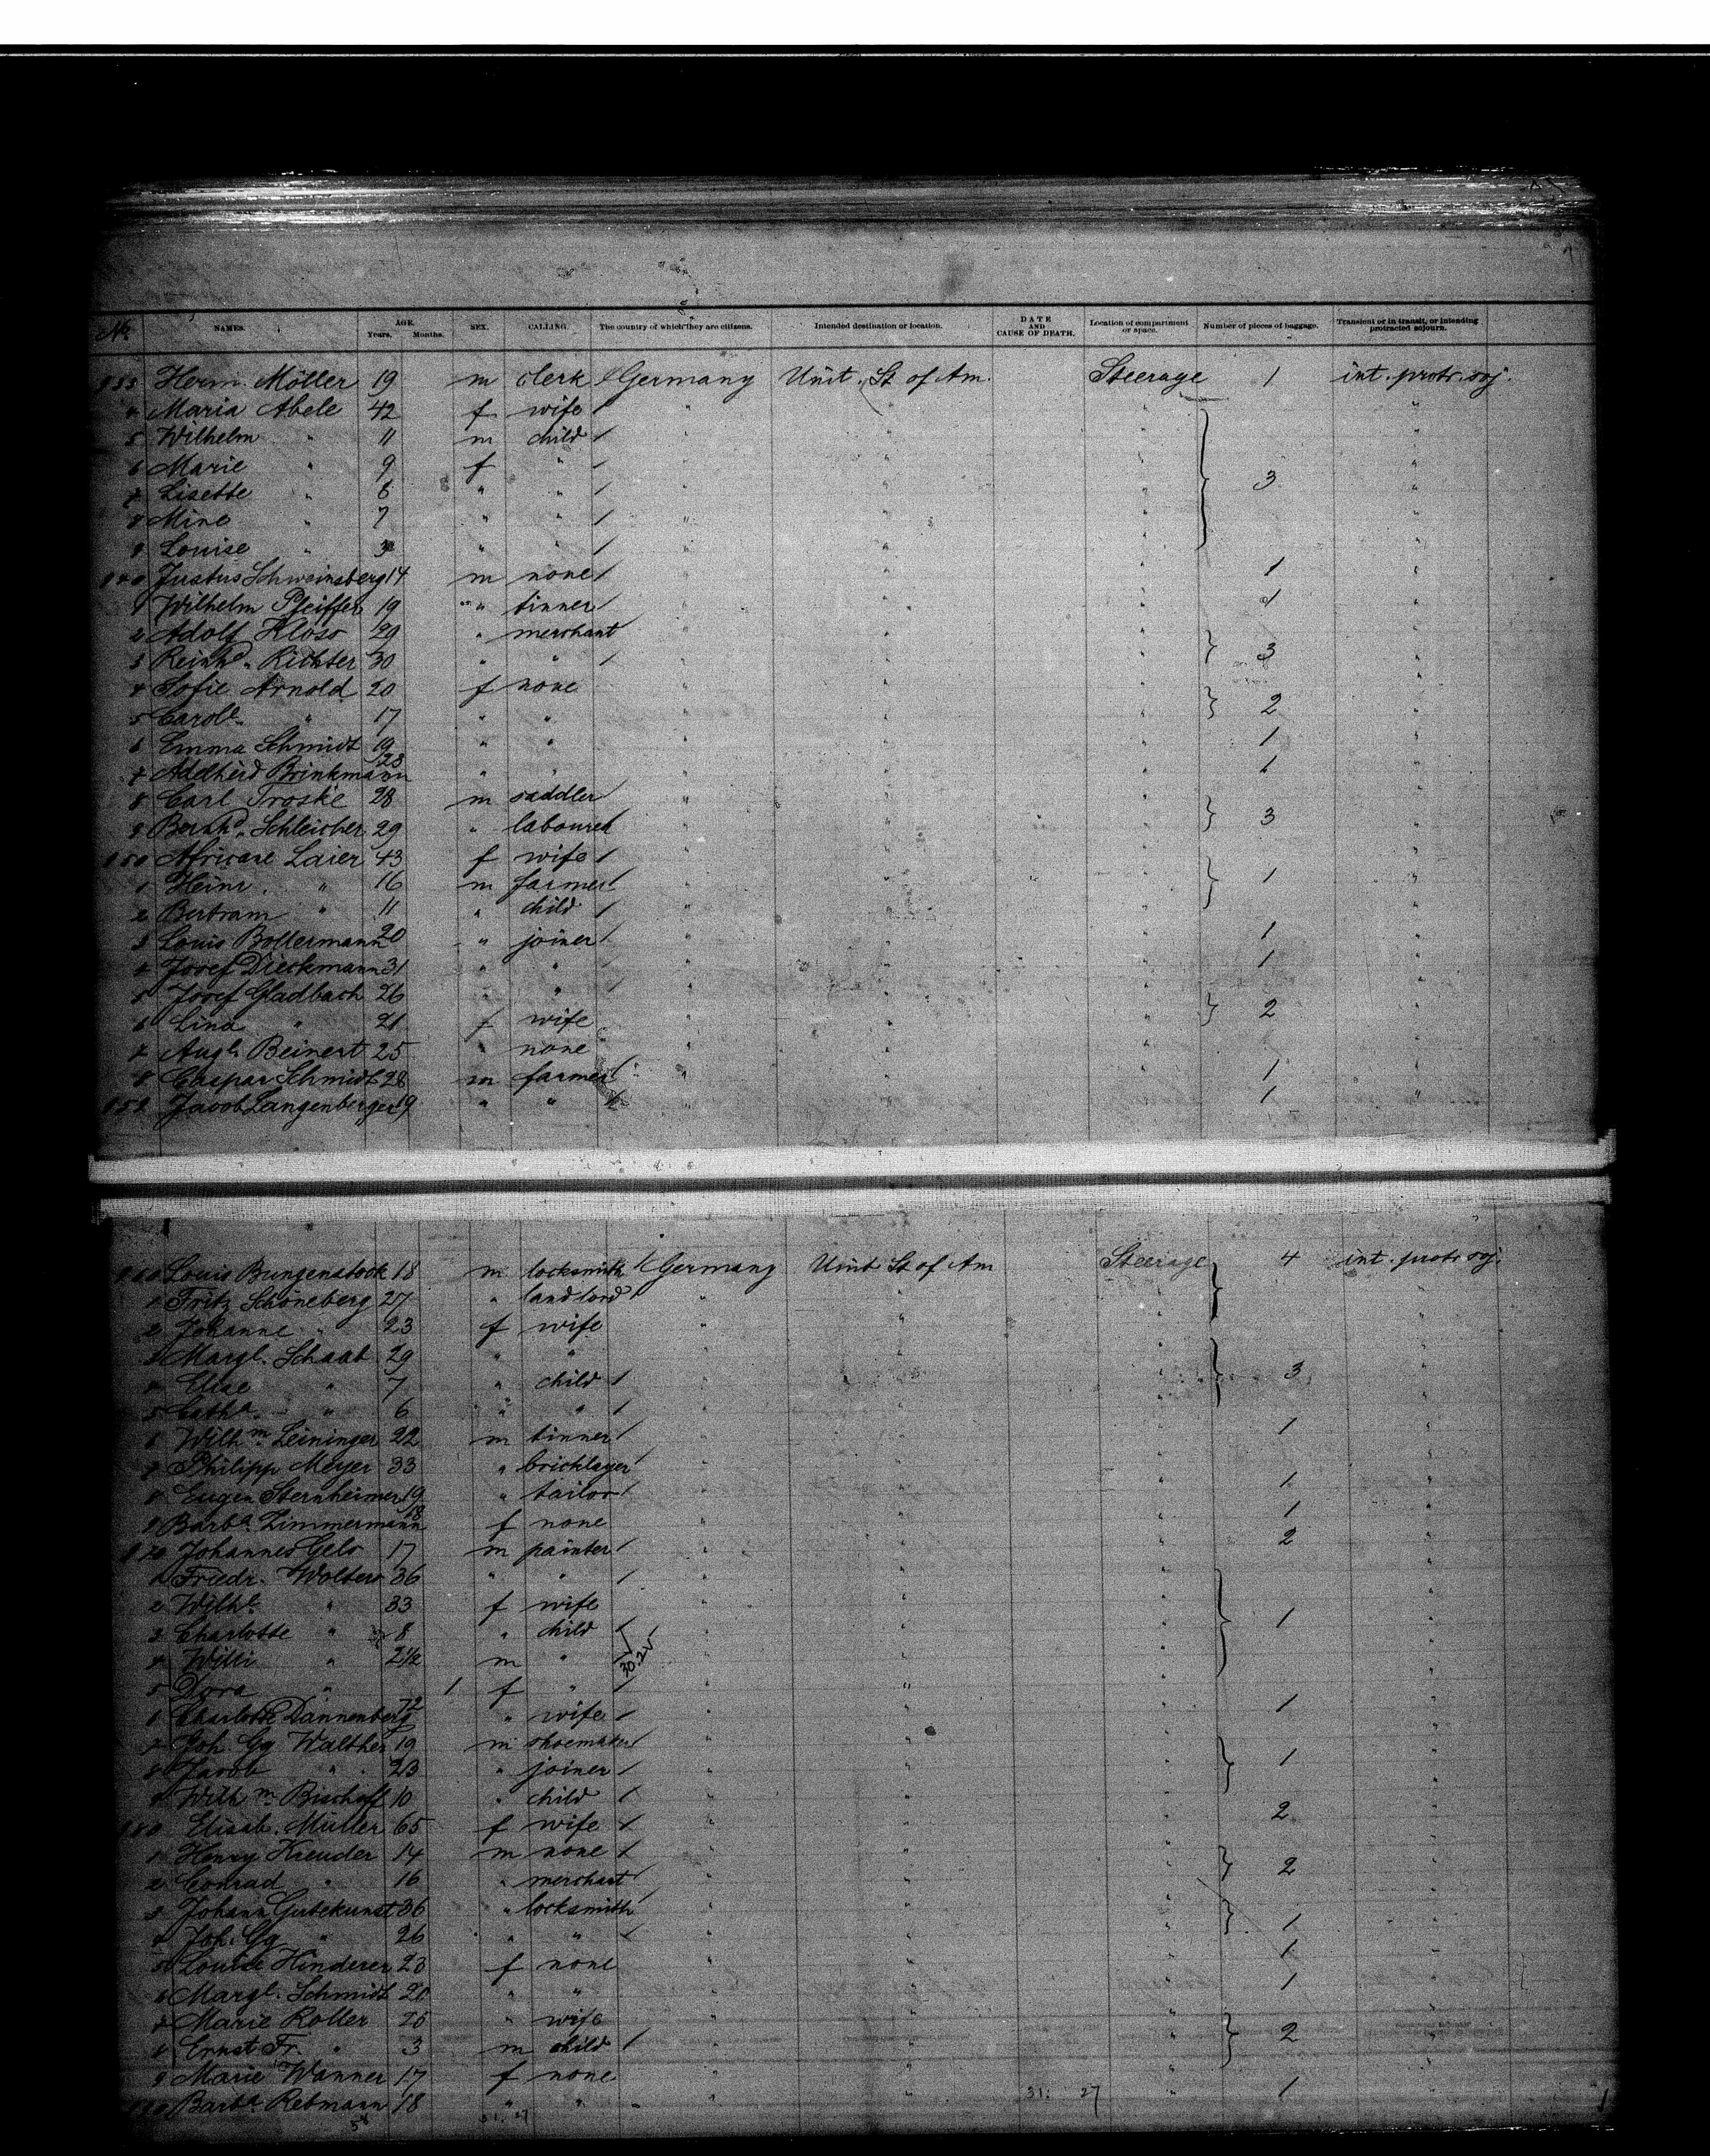 No. NAMES. AGE. Years. Months. SEX. CALLING. The country of which they are citizens. Intended destination or location. DATE AND CAUSE OF DEATH. Location of compartment or space. Number of pieces of baggage. Transient or in transit, or intending protracted sojourn.
Herm. Möller 19 m clerk Germany Unit. St of Am. Steerage 1 int. protr. soj.
4 Maria Abele 42 f wife " " " "
5 Wilhelm " 11 m child " " " "
6 Marie " 9 f " " " " "
7 Lisette " 8 " " " " " 3 "
8 Mine " 7 " " " " " "
9 Louise " 3 " " " " " "
Justus Schweinsberg 14 m none " " " 1 "
1 Wilhelm Pfeiffer 19 " tinner " " " 1 "
2 Adolf Kloso 29 " merchant " " " "
3 Reinhd. Richter 30 " " " " " 3 "
4 Sofie Arnold 20 f none " " " "
5 Carole. " 17 " " " " " 2 "
6 Emma Schmidt 19 " " " " " 1 "
7 Adelheid Brinkmann 23 " " " " " 1 "
8 Carl Troske 28 m saddler " " " "
9 Bernhd. Schleicher 29 " labourer " " " 3 "
Africane Laier 43 f wife " " " "
1 Heinr. " 16 m farmer " " " 1 "
2 Bertram " 11 " child " " " "
3 Louis Boltermann 20 " joiner " " " 1 "
4 Josef Dieckmann 31 " " " " " 1 "
5 Josef Gladbach 26 " " " " " "
6 Lina " 21 f wife " " " 2 "
7 Augl. Beinert 25 " none " " " "
8 Caspar Schmidt 28 m farmer " " " 1 "
Jacob Langenberger 19 " " 1 "
Louis Bungenstock 18 m locksmith Germany Unit St of Am Steerage 4 int. protr soj.
1 Fritz Schöneberg 27 " landlord " " " "
2 Johanne " 23 f wife " " " "
3 Margt. Schaab 29 " " " " " "
4 Elise " 7 " child " " " 3 "
5 Catha. " 6 " " " " " "
6 Wilhm. Leininger 22 m tinner " " " 1 "
7 Philipp Meyer 33 " bricklayer " " " "
8 Eugen Sternheimer 19 " tailor " " " 1 "
9 Barba. Zimmermann 18 f none " " " 1 "
Johannes Gels 17 m painter " " " 2 "
1 Friedr. Wolters 36 " " " " " "
2 Wilhe. " 33 f wife " " " "
3 Charlotte " 8 " child " " " 1 "
4 Willi " 2 1/2 m " " " " "
5 Dora " 1 f " " " " "
6 Charlotte Dannenberg 72 " wife " " " 1 "
7 Joh. Gg Walther 19 m shoemaker " " " "
8 Jacob " 23 " joiner " " " 1 "
9 Wilhm. Bischoff 10 " child " " " "
Elisab. Müller 65 f wife " " " 2 "
1 Henry Kreuder 14 m none " " " "
2 Conrad " 16 " merchant " " " 2 "
3 Johann Gutekunst 36 " locksmith " " " "
4 Joh. Gg " 26 " " " " " 1 "
5 Louise Hinderer 23 f none " " " 1 "
6 Margt. Schmidt 20 " " " " " 1 "
7 Marie Roller 25 " wife " " " "
8 Ernst Fr. " 3 m child " " " 2 "
9 Marie Wanner 17 f none " " " "
Barba. Rebmann 18 " " " " 31. 27 " 1 "
31. 27